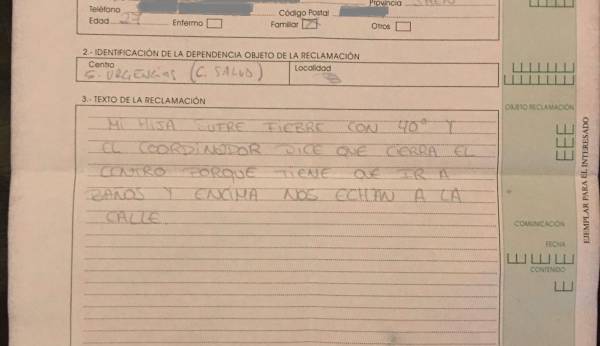 Provincia
Teléfono
Código Postal
Edad 27 Enfermo Familiar Otros
2.- IDENTIFICACIÓN DE LA DEPENDENCIA OBJETO DE LA RECLAMACIÓN
Centro Localidad
S. URGENCIAS (C. SALUD)
3.- TEXTO DE LA RECLAMACIÓN
MI HIJA SUFRE FIEBRE CON 40° Y
EL COORDINADOR DICE QUE CIERRA EL
CENTRO PORQUE TIENE QUE IR A
BAÑOS Y ENCIMA NOS ECHAN A LA
CALLE
OBJETO RECLAMACIÓN
COMUNICACIÓN
FECHA
CONTENIDO
EJEMPLAR PARA EL INTERESADO